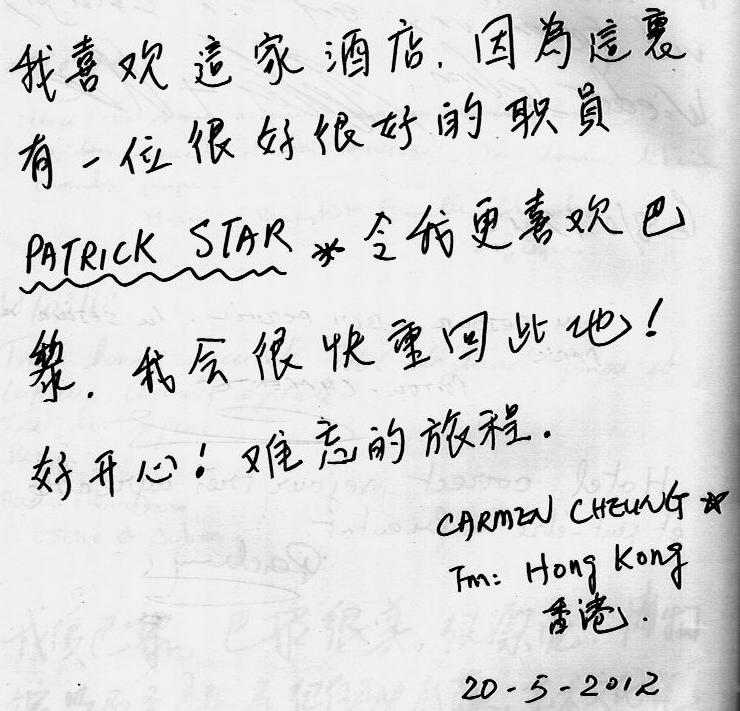 我喜欢這家酒店. 因為這裏
有一位很好很好的职員
PATRICK STAR * 令我更喜欢巴
黎. 我会很快重回此地!
好开心! 难忘的旅程.
CARMEN CHEUNG ☆
Fm: Hong Kong
香港.
20-5-2012